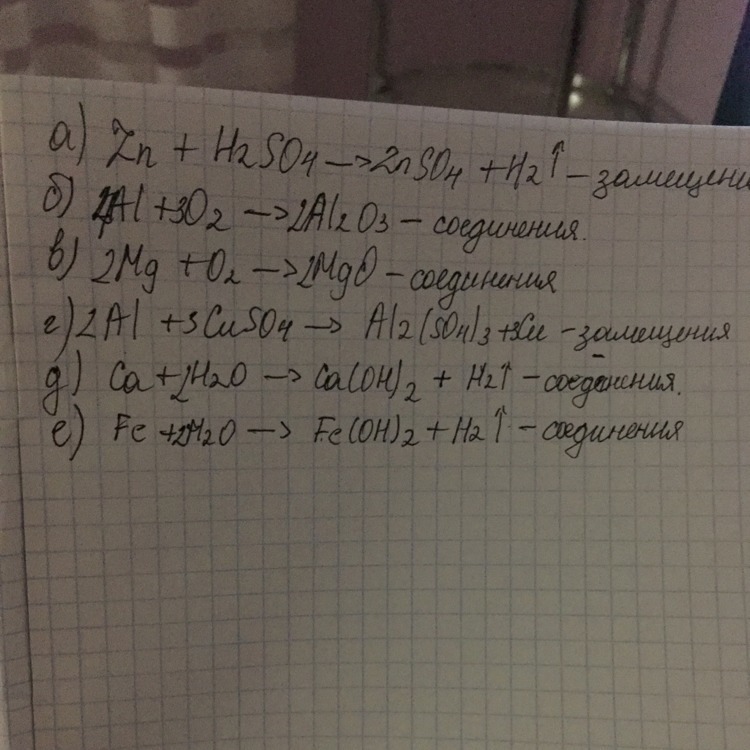 а) Zn + H2SO4 —> ZnSO4 + H2↑ – замещени
б) 4Al + 3O2 —> 2Al2O3 – соединения.
в) 2Mg + O2 —> 2MgO – соединения
г) 2Al + 3CuSO4 —> Al2(SO4)3 + 3Cu – замещения
д) Ca + 2H2O —> Ca(OH)2 + H2↑ – соединения.
е) Fe + 2H2O —> Fe(OH)2 + H2↑ – соединения